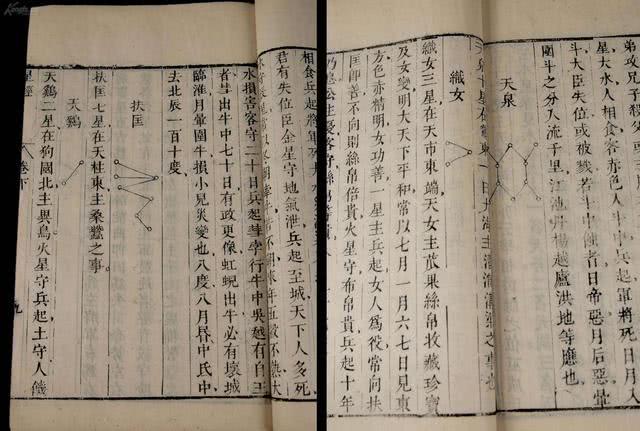 弟攻兄子殺父
星大水人相食客赤色人斗中兵起將死日月入
斗大臣失位或被戮若斗中蝕者日帝惡月后惡暈
圍斗之分入流千里江池丹楊越廬洪地等應也
天泉
天泉十星在鱉東一曰大海主溝
織女
織女三星在天市東端天女主苽果絲帛收藏珍寶
及女變明大天下平和常以七月一月六七日見東
方色赤精明女功善一星主兵起女人為役常向扶
匡即善不向則絲帛倍貴火星守布帛貴兵起十年
乃息公主憂客守絲帛
相食兵起將軍死
君有失位臣金星守地氣泄兵起至城天下人多死
水損害客守二十日兵起彗孛行牛中吳越有自立
者彗出牛中七十日有政更像虹蜺出牛必有壞城
臨淮月暈圍牛損小兒災變也八度八月昏中氏中
去北辰一百十度
扶匡
扶匡七星在天柱東主桑蠶之事
天鷄
天鷄二星在狗國北主異鳥火星守兵起土守人饑
星經 卷下 九